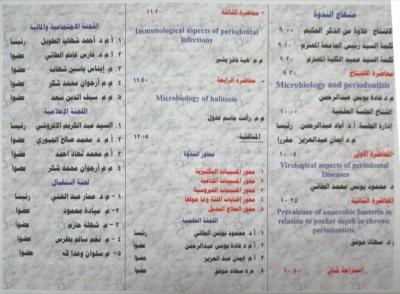 منهاج الندوة
الافتتاح تلاوة من الذكر الحكيم ٩.٠٠
كلمة السيد رئيس الجامعة المحترم
كلمة السيد عميد الكلية المحترم
محاضرة الافتتاح ٩.٣٠
Microbiology and periodontitis
أ.م.د غادة يونس عبدالرحمن
افتتاح الجلسة العلمية ١٠.٠٠
إدارة الجلسة أ.د اياد عبدالرحمن رئيسا
م.د ايمان عبدالعزيز مقررا
المحاضرة الأولى ١٠.٠٥
Virological aspects of periodontal
Diseases
أ.م.د محمود يونس محمد الطائي
المحاضرة الثانية ١٠.٢٥
Prevalence of anaerobic bacteria in
relation to pocket depth in chronic
periodontitis.
م.د سهاد موفق
استراحة شاي ١٠.٥٠
- محاضرة الثالثة ١١.٢٠
Immunological aspects of periodontal
infections
م.م هبة فائز بشير
- محاضرة الرابعة ١١.٤٠
Microbiology of halitosis
م.م رأفت جاسم عدول
المناقشة ١٢.٠٥
محاور الندوة
١- محور المسببات البكتيرية
٢- محور المسببات المناعية
٣- محور المسببات الفيروسية
٤- محور إصابات اللثة وما حولها
٥- محور العلاج البديل
اللجنة العلمية
١- أ.م.د محمود يونس الطائي رئيسا
٢- أ.م.د غادة يونس عبدالرحمن عضوا
٣- م.د ايمان عبد العزيز عضوا
٤- م.د سهاد موفق عضوا
اللجنة الاجتماعية والمالية
١. أ.م.د احمد شهاب الطويل رئيسا
٢. م.د فارس غانم الطائي عضوا
٣. م. إيناس ياسين شهاب عضوا
٤. م.م أرجوان محمد شكر عضوا
٥. م.م سيف الدين سعد عضوا
اللجنة الإعلامية
١. السيد عبد الكريم رئيسا
٢. أ.م.د محمد صالح الجبوري عضوا
٣. م.د محمد نهاد احمد عضوا
٤. م.م أرجوان محمد شكر عضوا
لجنة استقبال
١- م.د عمار عبد الغني رئيسا
٢- م. ميادة محمود عضوا
٣- م. شهلة حازم عضوا
٤- م. نغم سالم بطرس عضوا
٥- م. سلوان وعدا لله عضوا